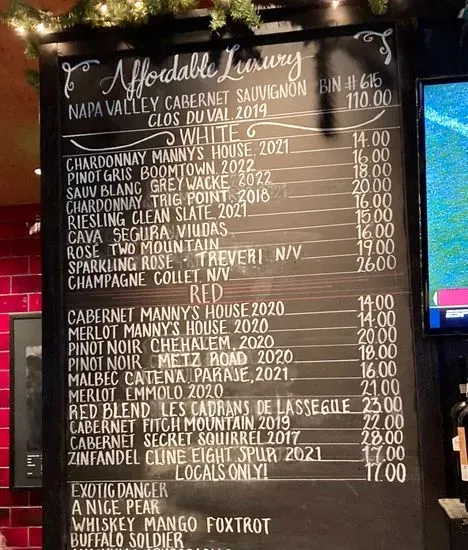 Affordable Luxury
NAPA VALLEY CABERNET SAUVIGNON BIN # 615
CLOS DU VAL, 2019 110.00
WHITE
CHARDONNAY MANNY'S HOUSE, 2021 14.00
PINOT GRIS BOOMTOWN, 2022 16.00
SAUV BLANC GREYWACKE 2022 18.00
CHARDONNAY TRIG POINT, 2018 20.00
RIESLING CLEAN SLATE, 2021 16.00
CAVA SEGURA VIUDAS 15.00
ROSE TWO MOUNTAIN 16.00
SPARKLING ROSE TREVERI N/V 19.00
CHAMPAGNE COLLET, N/V 26.00
RED
CABERNET MANNY'S HOUSE 2020 14.00
MERLOT MANNY'S HOUSE, 2020 14.00
PINOT NOIR CHEHALEM, 2020 20.00
PINOT NOIR METZ ROAD 2020 18.00
MALBEC CATENA, PARAJE, 2021 16.00
MERLOT EMMOLO, 2020 21.00
RED BLEND LES CADRANS DE LASSEGUE 23.00
CABERNET FITCH MOUNTAIN, 2019 22.00
CABERNET SECRET SQUIRREL 2017 28.00
ZINFANDEL CLINE EIGHT SPUR 2021 17.00
LOCALS ONLY! 17.00
EXOTIC DANCER
A NICE PEAR
WHISKEY MANGO FOXTROT
BUFFALO SOLDIER